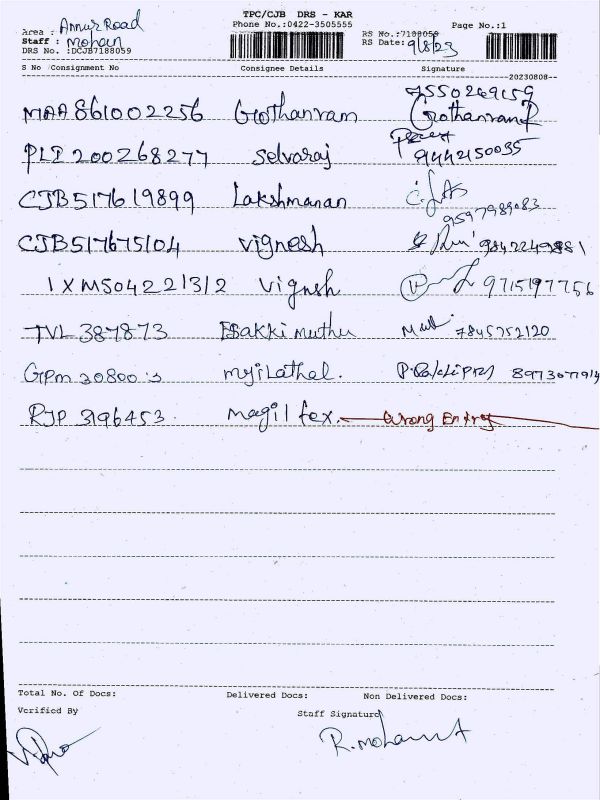 TPC/CJB DRS - KAR
Area : Amur Road Phone No.:0422-3505555 RS No.:7188059 Page No.:1
Staff : Mohan RS Date: 9/8/23
DRS No. :DCJB7188059
S No /Consignment No Consignee Details Signature
20230808
7550269159
MAA 861002256 Gothanram Gothanram P
PLI 200268277 Selvaraj 9442150035
CJB517619899 Lakshmanan 9597989083
CJB517675104 Vignesh 9842249881
IXM504221312 Vignesh 9715197756
TVL 387873 Esakki muthu Mutt 7845752120
GPM 30800 myilathal. 8973077914
RJP 3196453. magil fex. Wrong Entry
Total No. Of Docs: Delivered Docs: Non Delivered Docs:
Verified By Staff Signature
R.mohan